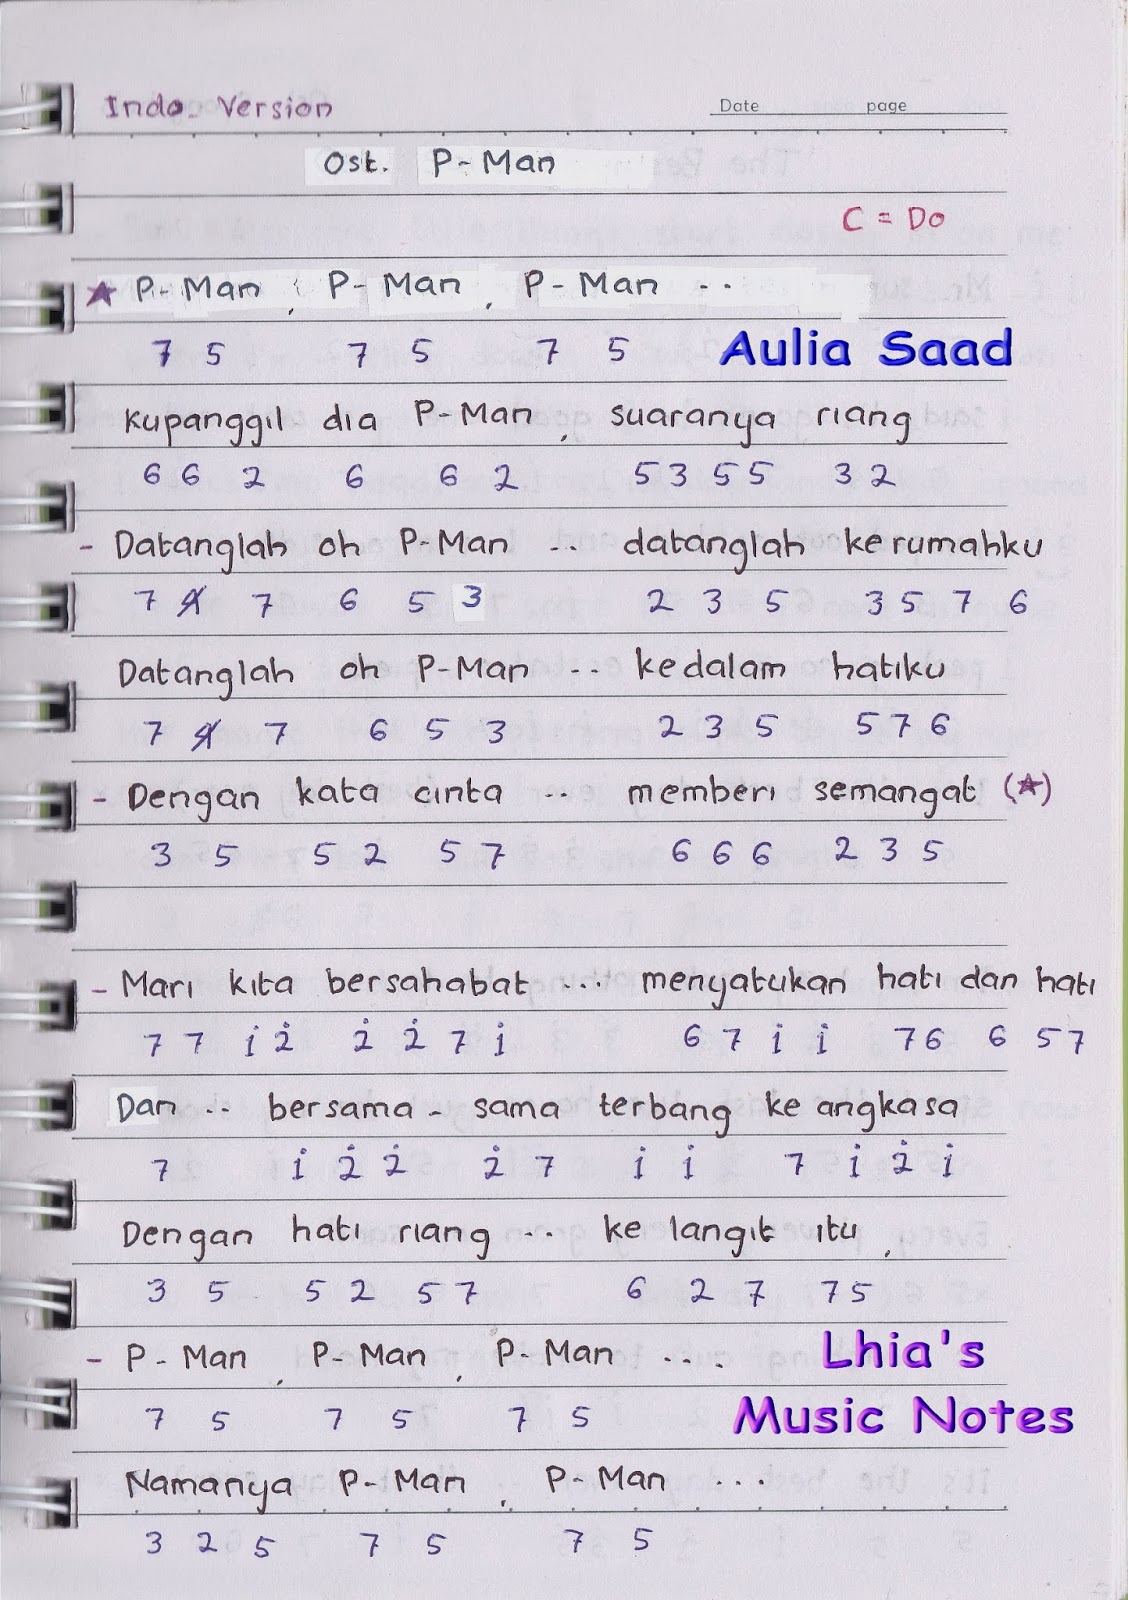 Indo. Version
Date page
Ost. P-Man
C = Do
★ P-Man, P-Man, P-Man ..
7 5 7 5 7 5 Aulia Saad
Kupanggil dia P-Man, suaranya riang
6 6 2 6 6 2 5 3 5 5 3 2
- Datanglah oh P-Man .. datanglah kerumahku
7 4̸ 7 6 5 3 2 3 5 3 5 7 6
Datanglah oh P-Man .. kedalam hatiku
7 4̸ 7 6 5 3 2 3 5 5 7 6
- Dengan kata cinta ... memberi semangat (★)
3 5 5 2 5 7 6 6 6 2 3 5
- Mari kita bersahabat ... menyatukan hati dan hati
7 7 1̇ 2̇ 2̇ 2̇ 7 1̇ 6 7 1̇ 1̇ 7 6 6 5 7
Dan .. bersama - sama terbang ke angkasa
7 1̇ 2̇ 2̇ 2̇ 7 1̇ 1̇ 7 1̇ 2̇ 1̇
Dengan hati riang ... ke langit itu,
3 5 5 2 5 7 6 2 7 7 5
- P-Man, P-Man, P-Man .... Lhia's
7 5 7 5 7 5 Music Notes
Namanya P-Man, P-Man ...
3 2 5 7 5 7 5